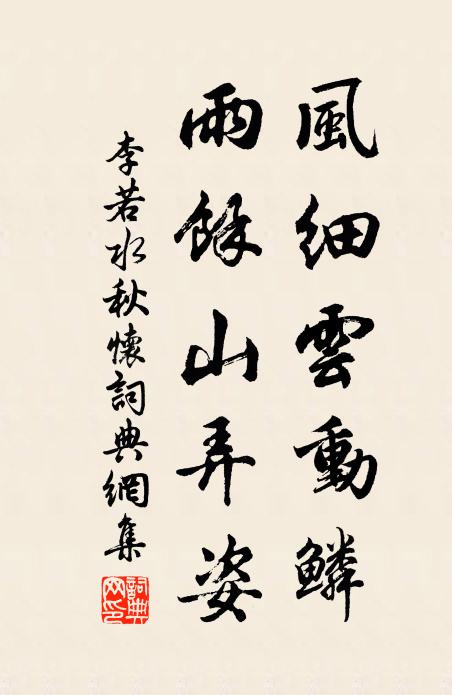 風細雲動鱗
雨餘山弄姿
李若水秋懷詞典網集
詞典網印